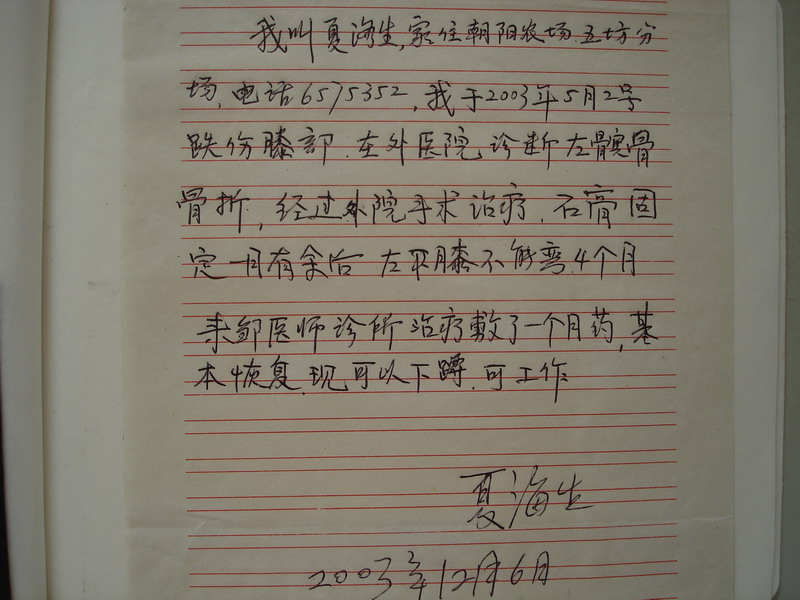 我叫夏海生,家住朝阳农场五坊分
场,电话6575352,我于2003年5月2号
跌伤膝部.在外医院诊断左髌骨
骨折,经过外院手术治疗.石膏固
定一月有余后 左膝不能弯.4个月
来邹医师诊所治疗敷了一个月药,基
本恢复.现可以下蹲.可工作
夏海生
2003年12月6月